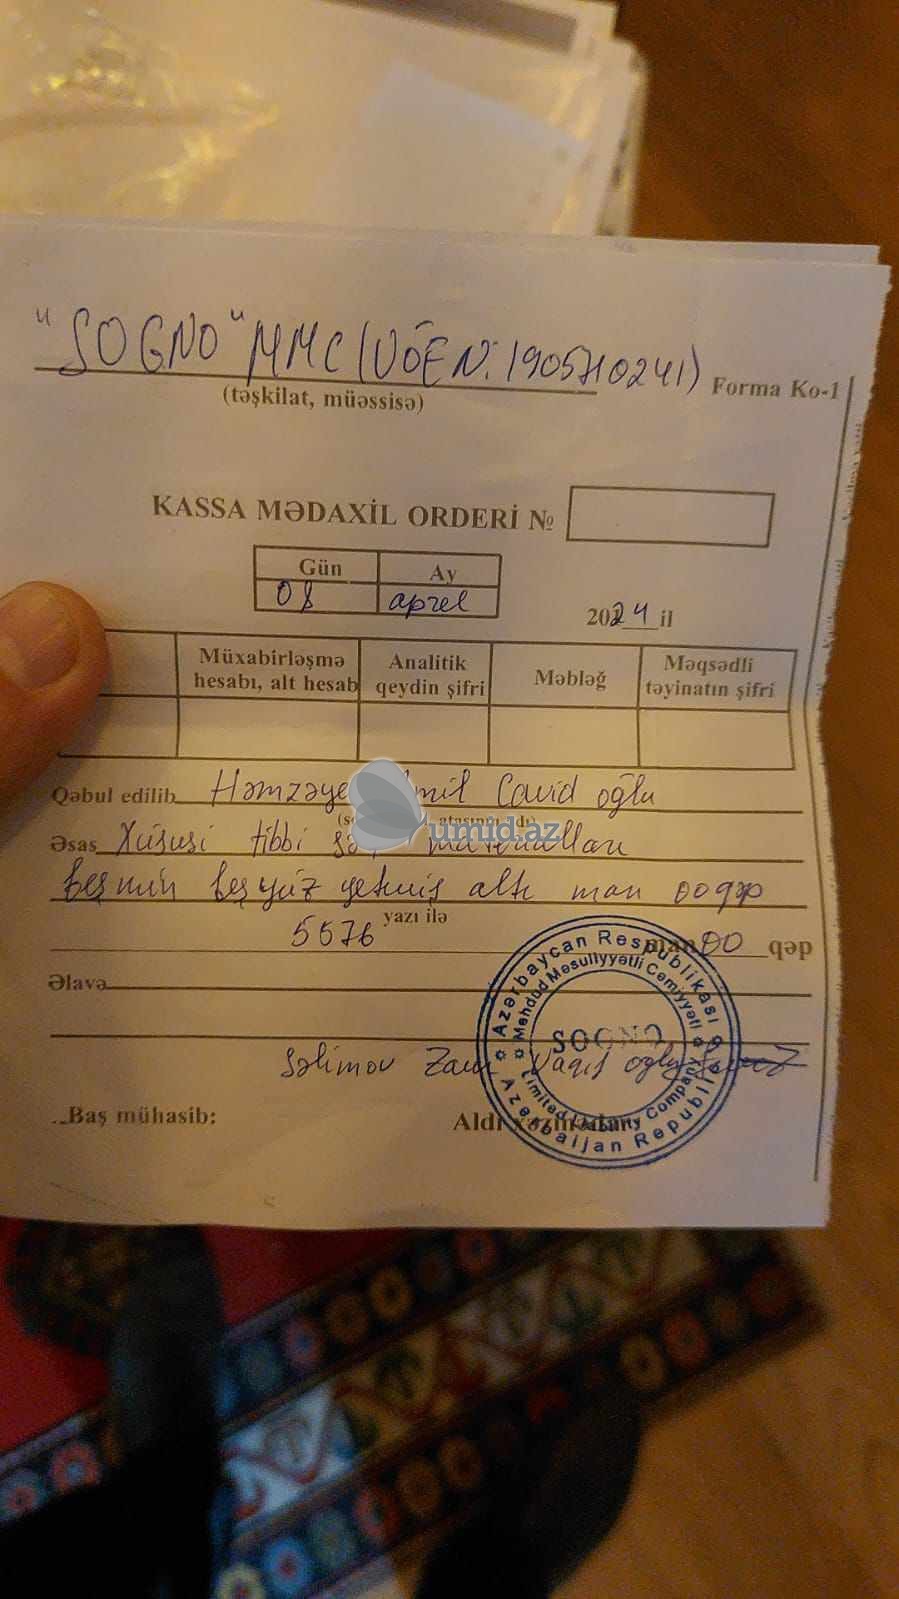 "SOGNO" MMC (VÖEN: 1905710241)
(təşkilat, müəssisə)
Forma Ko-1
KASSA MƏDAXİL ORDERİ №
Gün Ay
08 aprel
2024 il
Müxabirləşmə hesabı, alt hesab
Analitik qeydin şifri
Məbləğ
Məqsədli təyinatın şifri
Qəbul edilib Cavid oğlu
umid.az
Əsas Xüsusi tibbi materialları
beş min beş yüz yetmiş altı man 00 qəp
yazı ilə
5576 man 00 qəp
Əlavə
Səlimov Vaqif oğlu
Baş mühasib:
Azərbaycan Respublikası
Məhdud Məsuliyyətli Cəmiyyəti
SOGNO
Limited Liability Company
Azerbaijan Republic